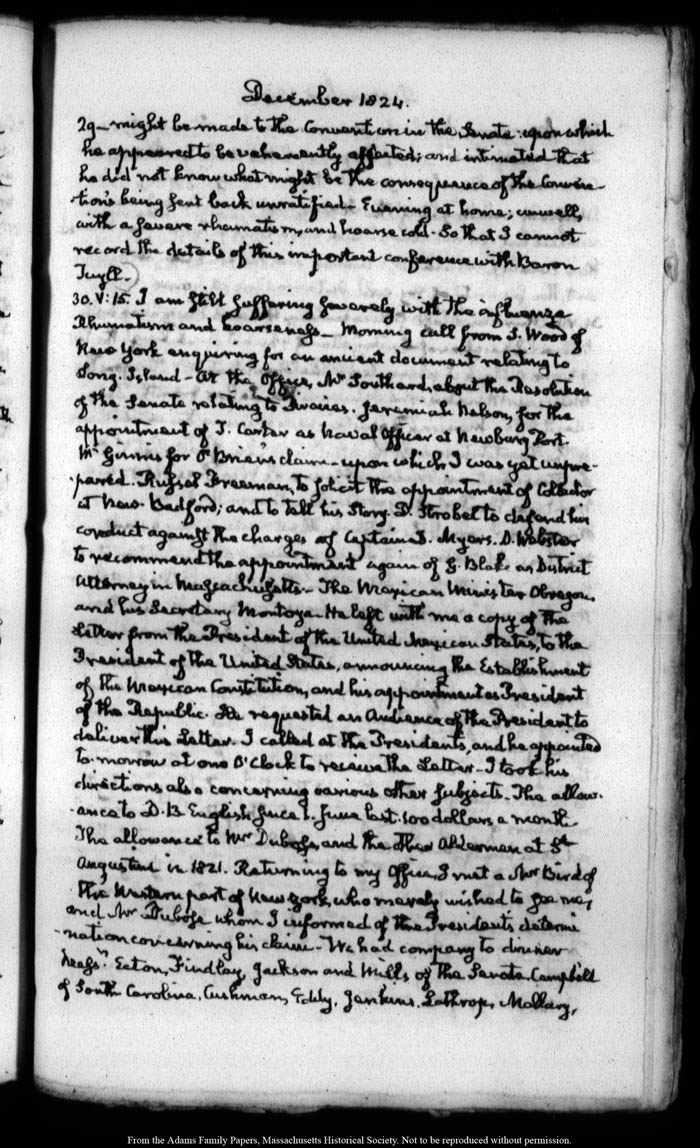 December 1824.
29_ might be made to the Convention in the Senate: upon which
he appeared to be vehemently affected; and intimated that
he did not know what might be the consequence of the Conven-
-tion's being sent back unratified_ Evening at home; unwell,
with a severe rheumatism, and hoarse cold. So that I cannot
record the details of this important conference with Baron
Tuyll.
30. V:15. I am still suffering severely with the influenza
Rhumatism and hoarseness_ Morning call from S. Wood of
New York enquiring for an ancient document relating to
Long-Island_ At the Office, Mr Southard, about the Resolution
of the Senate relating to Piracies. Jeremiah Nelson, for the
appointment of J. Carter as Naval Officer at Newbury Port.
McGinnis for O'Brien's claim_ upon which I was yet unpre-
-pared. Russel Freeman, to solicit the appointment of Collector
at New-Bedford; and to tell his Story. D. Strobel to defend his
conduct against the charges of Captain S. Myers. D. Webster
to recommend the appointment again of G. Blake as District
Attorney in Massachusetts_ The Mexican Minister Obregon,
and his Secretary Montoya_ He left with me a copy of the
Letter from the President of the United Mexican States, to the
President of the United States, announcing the Establishment
of the Mexican Constitution, and his appointment as President
of the Republic. He requested an Audience of the President to
deliver this Letter. I called at the President's, and he appointed
to-morrow at one O'Clock to receive the Letter_ I took his
directions also concerning various other subjects_ The allow-
-ance to D. B English since 1. June last. 100 dollars a month.
The allowance to Mr Dubose, and the Aldermen at St
Augustine in 1821. Returning to my Office, I met a Mr Bird of
the Western part of New York, who merely wished to see me;
and Mr Dubose whom I informed of the President's determi
-nation concerning his claim_ We had company to dinner
Messrs Eaton, Findlay, Jackson and Mills of the Senate. Campbell
of South Carolina, Cushman, Eddy, Jenkins, Lathrop, Mallary,
From the Adams Family Papers, Massachusetts Historical Society. Not to be reproduced without permission.